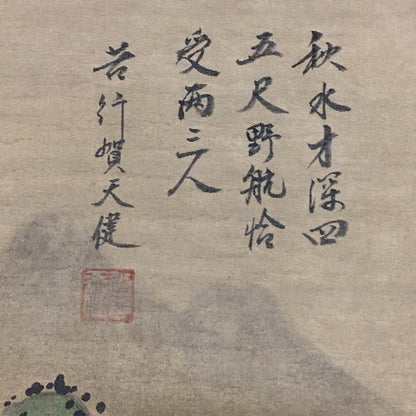 秋水才深四
五尺野航恰
受兩三人
苦行賀天健